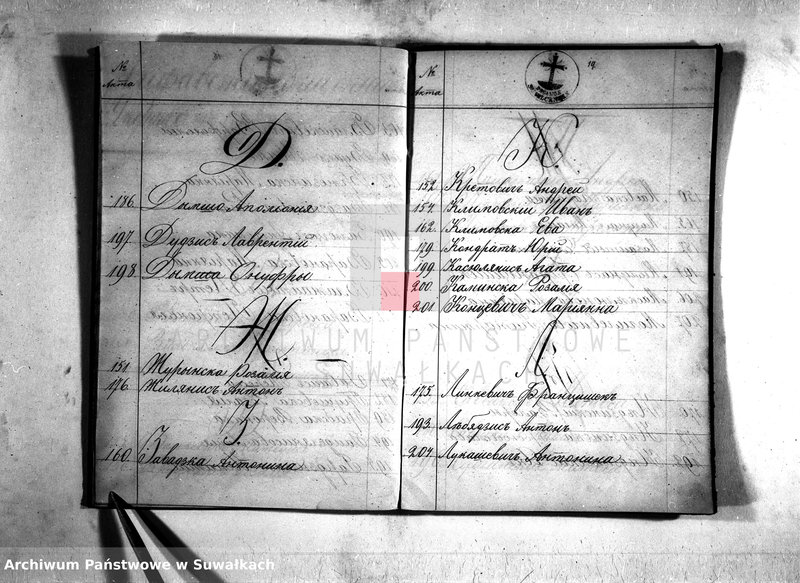 №
Акта
Д.
186. Дыпшо Аполіонія
197. Дудзисъ Лаврентій
198. Дыписа Онуфры
Ж.
151. Журынска Розалія
176. Жилянисъ Антонъ
З
160. Завадзка Антонина
№
Акта
19.
К.
152. Кретовичъ Андреи
154. Климовскіи Иванъ
162. Климовска Ева
179. Кондратъ Юрій
199. Касюлянисъ Агата
200. Каминска Розалія
201. Концевичъ Маріянна
Л.
175. Линкевичъ Францишекъ
193. Любядзисъ Антонъ
204. Лукашевичъ Антонина
ARCHIWUM PAŃSTWOWE
W SUWAŁKACH
Archiwum Państwowe w Suwałkach